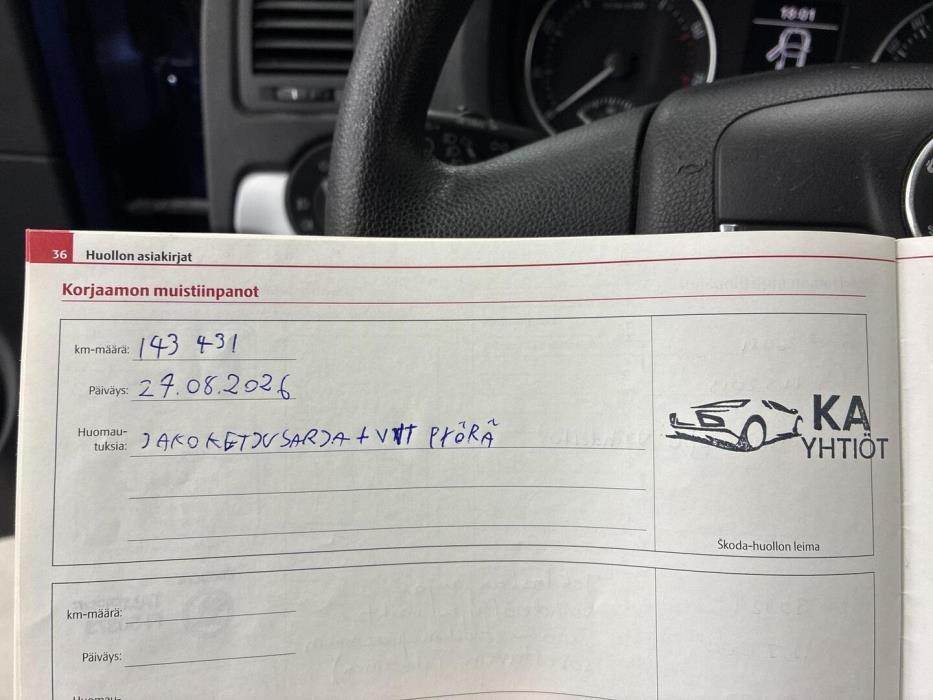 18:01
36 Huollon asiakirjat
Korjaamon muistiinpanot
km-määrä: 143 431
Päiväys: 27.08.2026
Huomau-
tuksia: JAKOKETJUSARJA + VVT PYÖRÄ
KA
YHTIÖT
Škoda-huollon leima
km-määrä:
Päiväys:
Huomau-